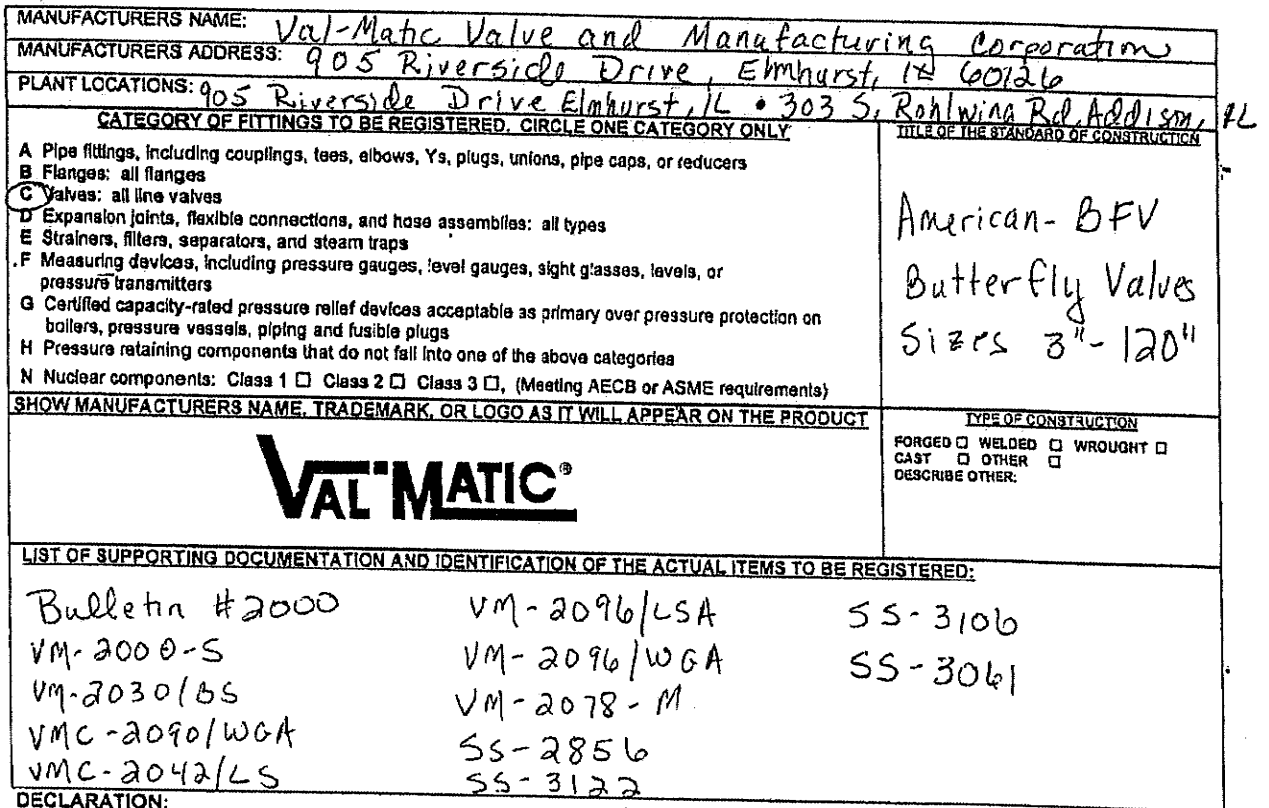 MANUFACTURERS NAME: Val-Matic Valve and Manufacturing Corporation
MANUFACTURERS ADDRESS: 905 Riverside Drive, Elmhurst, IL 60126
PLANT LOCATIONS: 905 Riverside Drive Elmhurst, IL • 303 S. Rohlwing Rd. Addison, IL
CATEGORY OF FITTINGS TO BE REGISTERED. CIRCLE ONE CATEGORY ONLY
A Pipe fittings, including couplings, tees, elbows, Ys, plugs, unions, pipe caps, or reducers
B Flanges: all flanges
C Valves: all line valves
D Expansion joints, flexible connections, and hose assemblies: all types
E Strainers, filters, separators, and steam traps
F Measuring devices, including pressure gauges, level gauges, sight glasses, levels, or
pressure transmitters
G Certified capacity-rated pressure relief devices acceptable as primary over pressure protection on
boilers, pressure vessels, piping and fusible plugs
H Pressure retaining components that do not fall into one of the above categories
N Nuclear components: Class 1 ☐ Class 2 ☐ Class 3 ☐, (Meeting AECB or ASME requirements)
TITLE OF THE STANDARD OF CONSTRUCTION
American-BFV
Butterfly Valves
Sizes 3"-120"
SHOW MANUFACTURERS NAME, TRADEMARK, OR LOGO AS IT WILL APPEAR ON THE PRODUCT
VAL-MATIC®
TYPE OF CONSTRUCTION
FORGED ☐ WELDED ☐ WROUGHT ☐
CAST ☐ OTHER ☐
DESCRIBE OTHER:
LIST OF SUPPORTING DOCUMENTATION AND IDENTIFICATION OF THE ACTUAL ITEMS TO BE REGISTERED:
Bulletin #2000
VM-2000-S
VM-2030/BS
VMC-2090/WGA
VMC-2042/LS
VM-2096/LSA
VM-2096/WGA
VM-2078-M
SS-2856
SS-3122
SS-3106
SS-3061
DECLARATION: